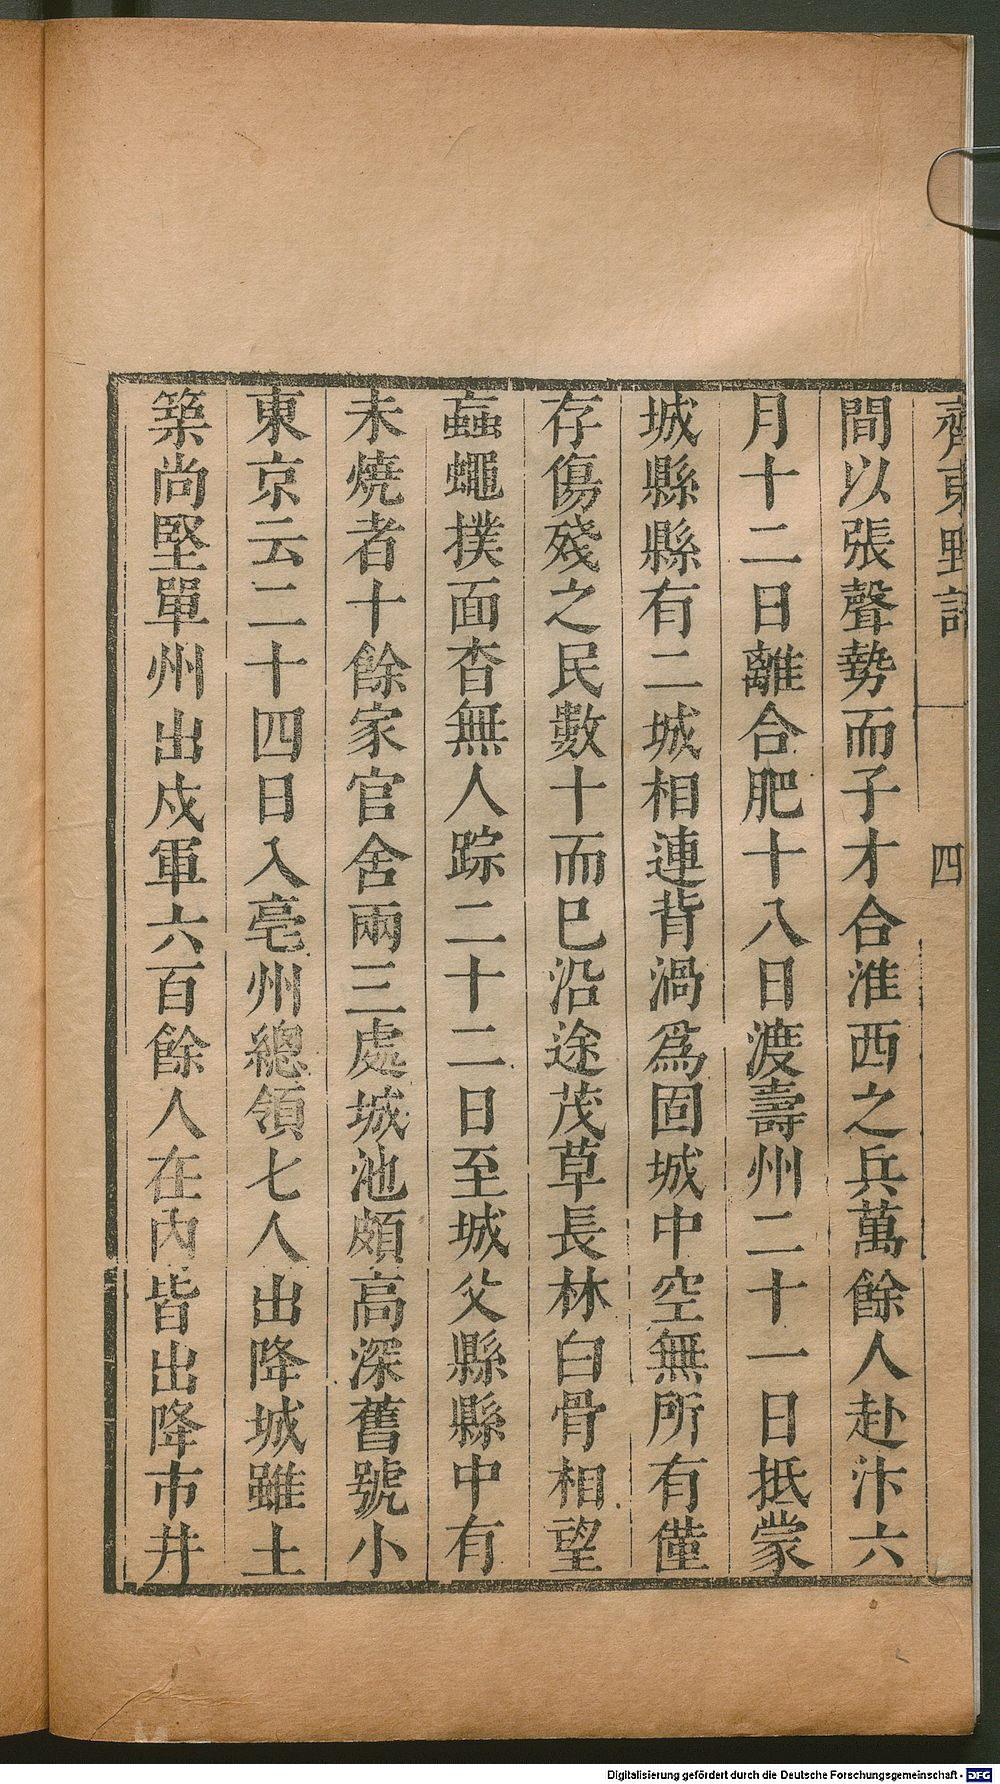 齊東野語
四
間以張聲勢而子才合淮西之兵萬餘人赴汴六
月十二日離合肥十八日渡壽州二十一日抵蒙
城縣縣有二城相連背渦爲固城中空無所有僅
存傷殘之民數十而巳沿途茂草長林白骨相望
蝱蠅撲面杳無人踪二十二日至城父縣縣中有
未燒者十餘家官舍兩三處城池頗高深舊號小
東京云二十四日入亳州總領七人出降城雖土
築尚堅單州出戍軍六百餘人在內皆出降市井
Digitalisierung gefördert durch die Deutsche Forschungsgemeinschaft - DFG